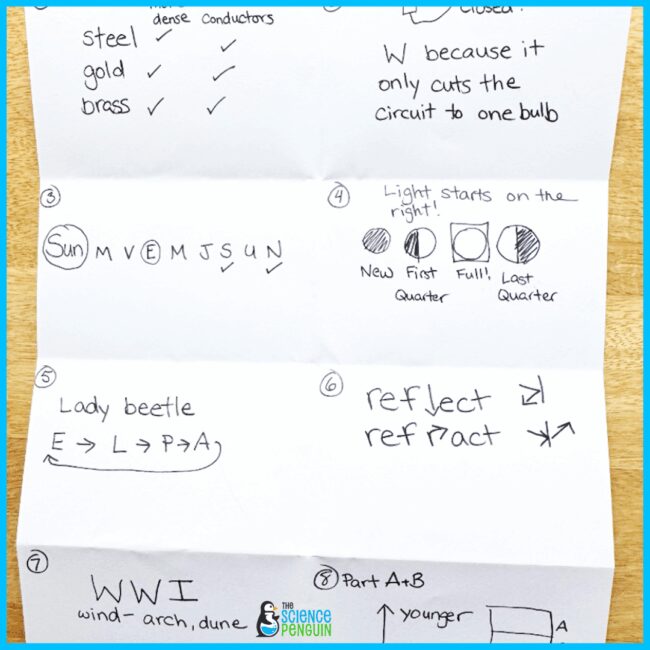 dense Conductors
steel ✓ ✓
gold ✓ ✓
brass ✓ ✓
closed?
W because it
only cuts the
circuit to one bulb
③
Sun M V E M J S U N
✓ ✓
④
Light starts on the
right!
New First Full! Last
Quarter Quarter
⑤
Lady beetle
E → L → P → A
⑥
reflect
refract
⑦
WWI
wind - arch, dune
⑧ Part A+B
↑ younger
A
THE
SCIENCE
PENGUIN